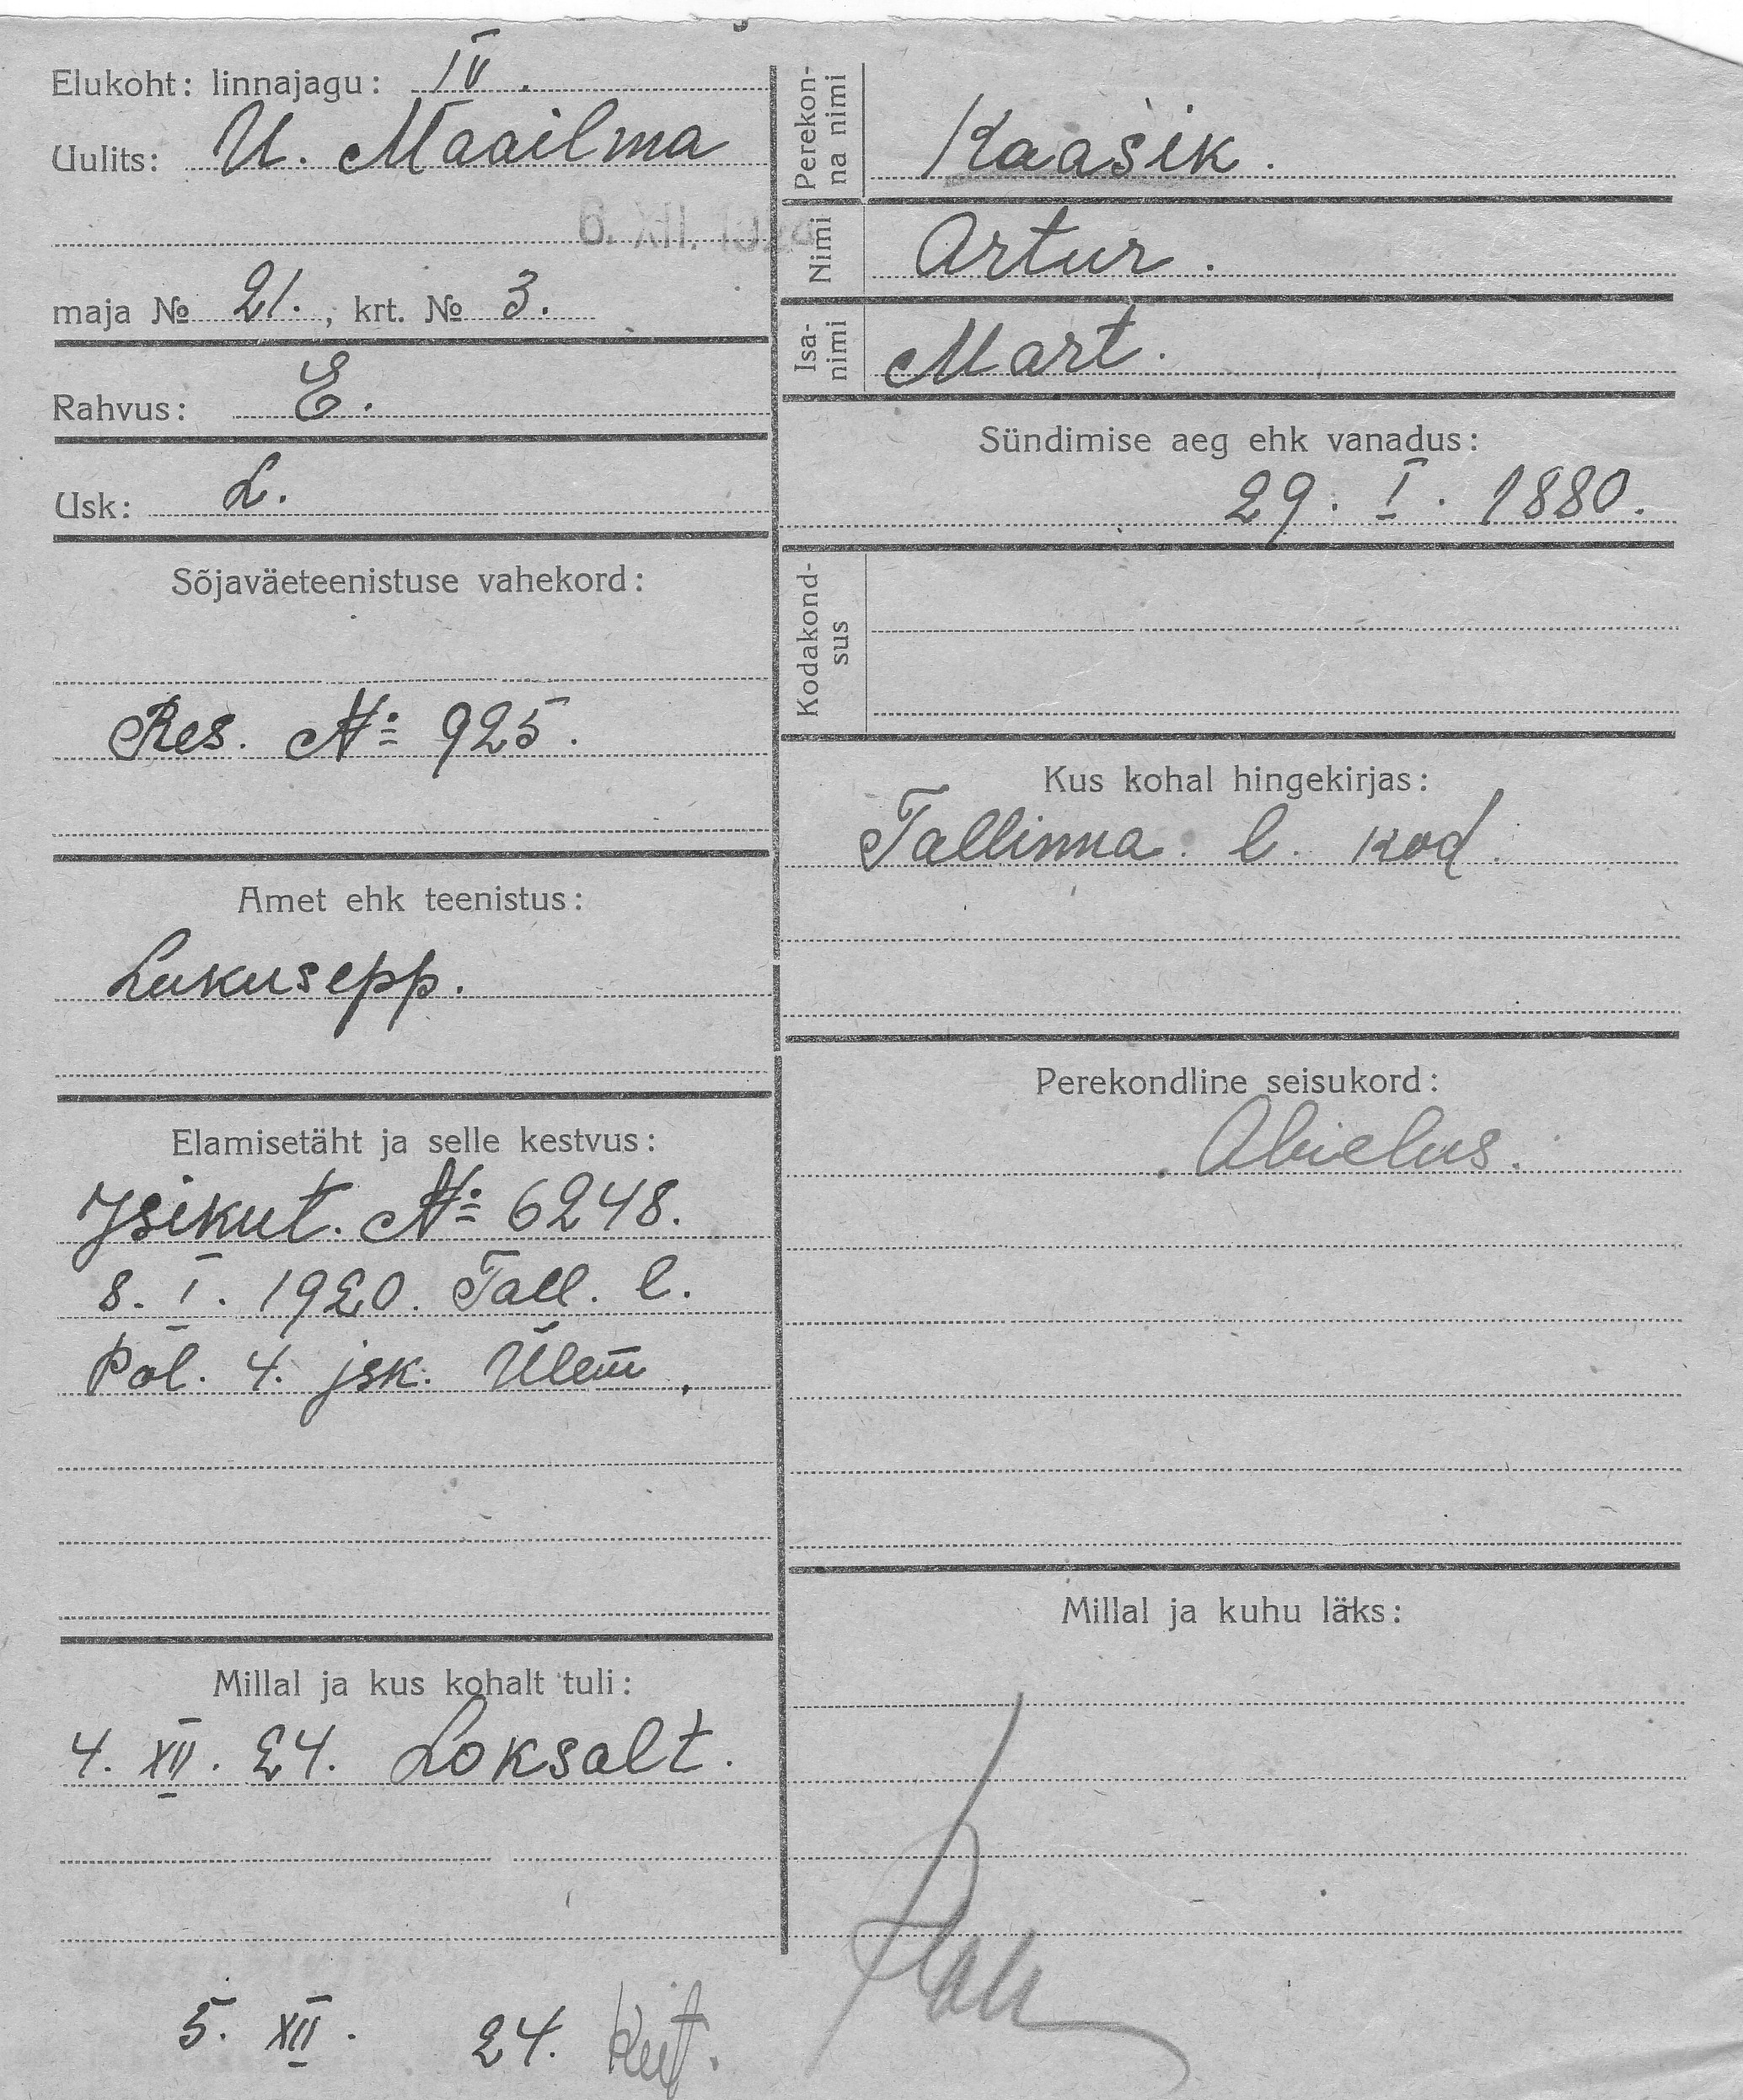 Elukoht: linnajagu: IV.
Uulits: U. Maailma
6. XII. 1924
maja № 21., krt. № 3.
Rahvus: E.
Usk: L.
Sõjaväeteenistuse vahekord:
Res. № 925.
Amet ehk teenistus:
Lukusepp.
Elamisetäht ja selle kestvus:
Isikut. № 6248.
8. I. 1920. Tall. l.
Pol. 4. jsk. Ülem.
Millal ja kus kohalt tuli:
4. XII. 24. Loksalt.
5. XII. 24.
Perekon-
na nimi
Kaasik.
Nimi
Artur.
Isa-
nimi
Mart.
Sündimise aeg ehk vanadus:
29. I. 1880.
Kodakond-
sus
Kus kohal hingekirjas:
Tallinna l. kod.
Perekondline seisukord:
Abielus.
Millal ja kuhu läks: